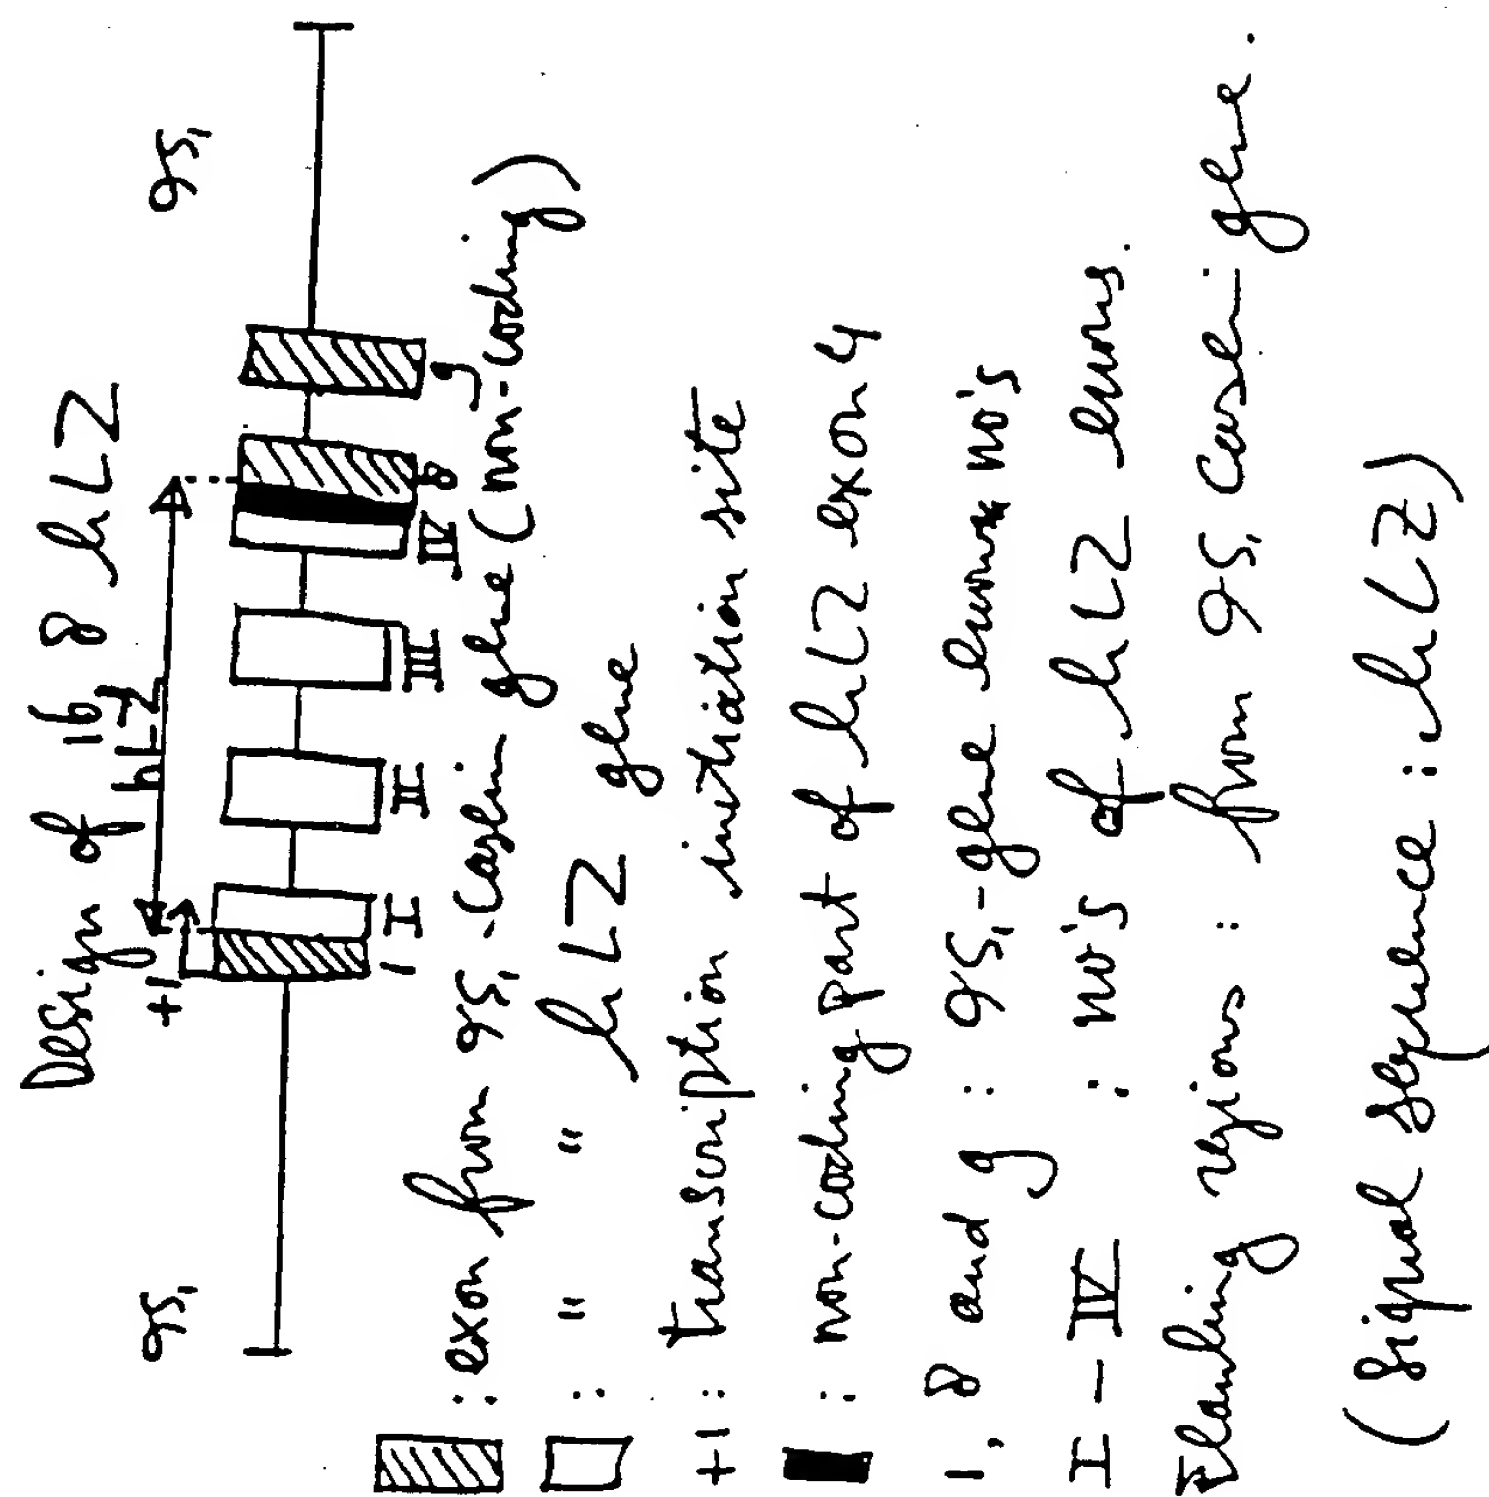 Design of 16 8 hLZ
hLZ
9S₁ +1 9S₁
1 I II III IV 8 9
: exon from 9S₁-casein gene (non-coding)
: " " hLZ gene
+1: transcription initiation site
: non-coding part of hLZ exon 4
1, 8 and 9 : 9S₁-gene exons no's
I-IV : no's of hLZ exons.
Flanking regions : from 9S₁ casein gene.
(Signal sequence : hLZ)